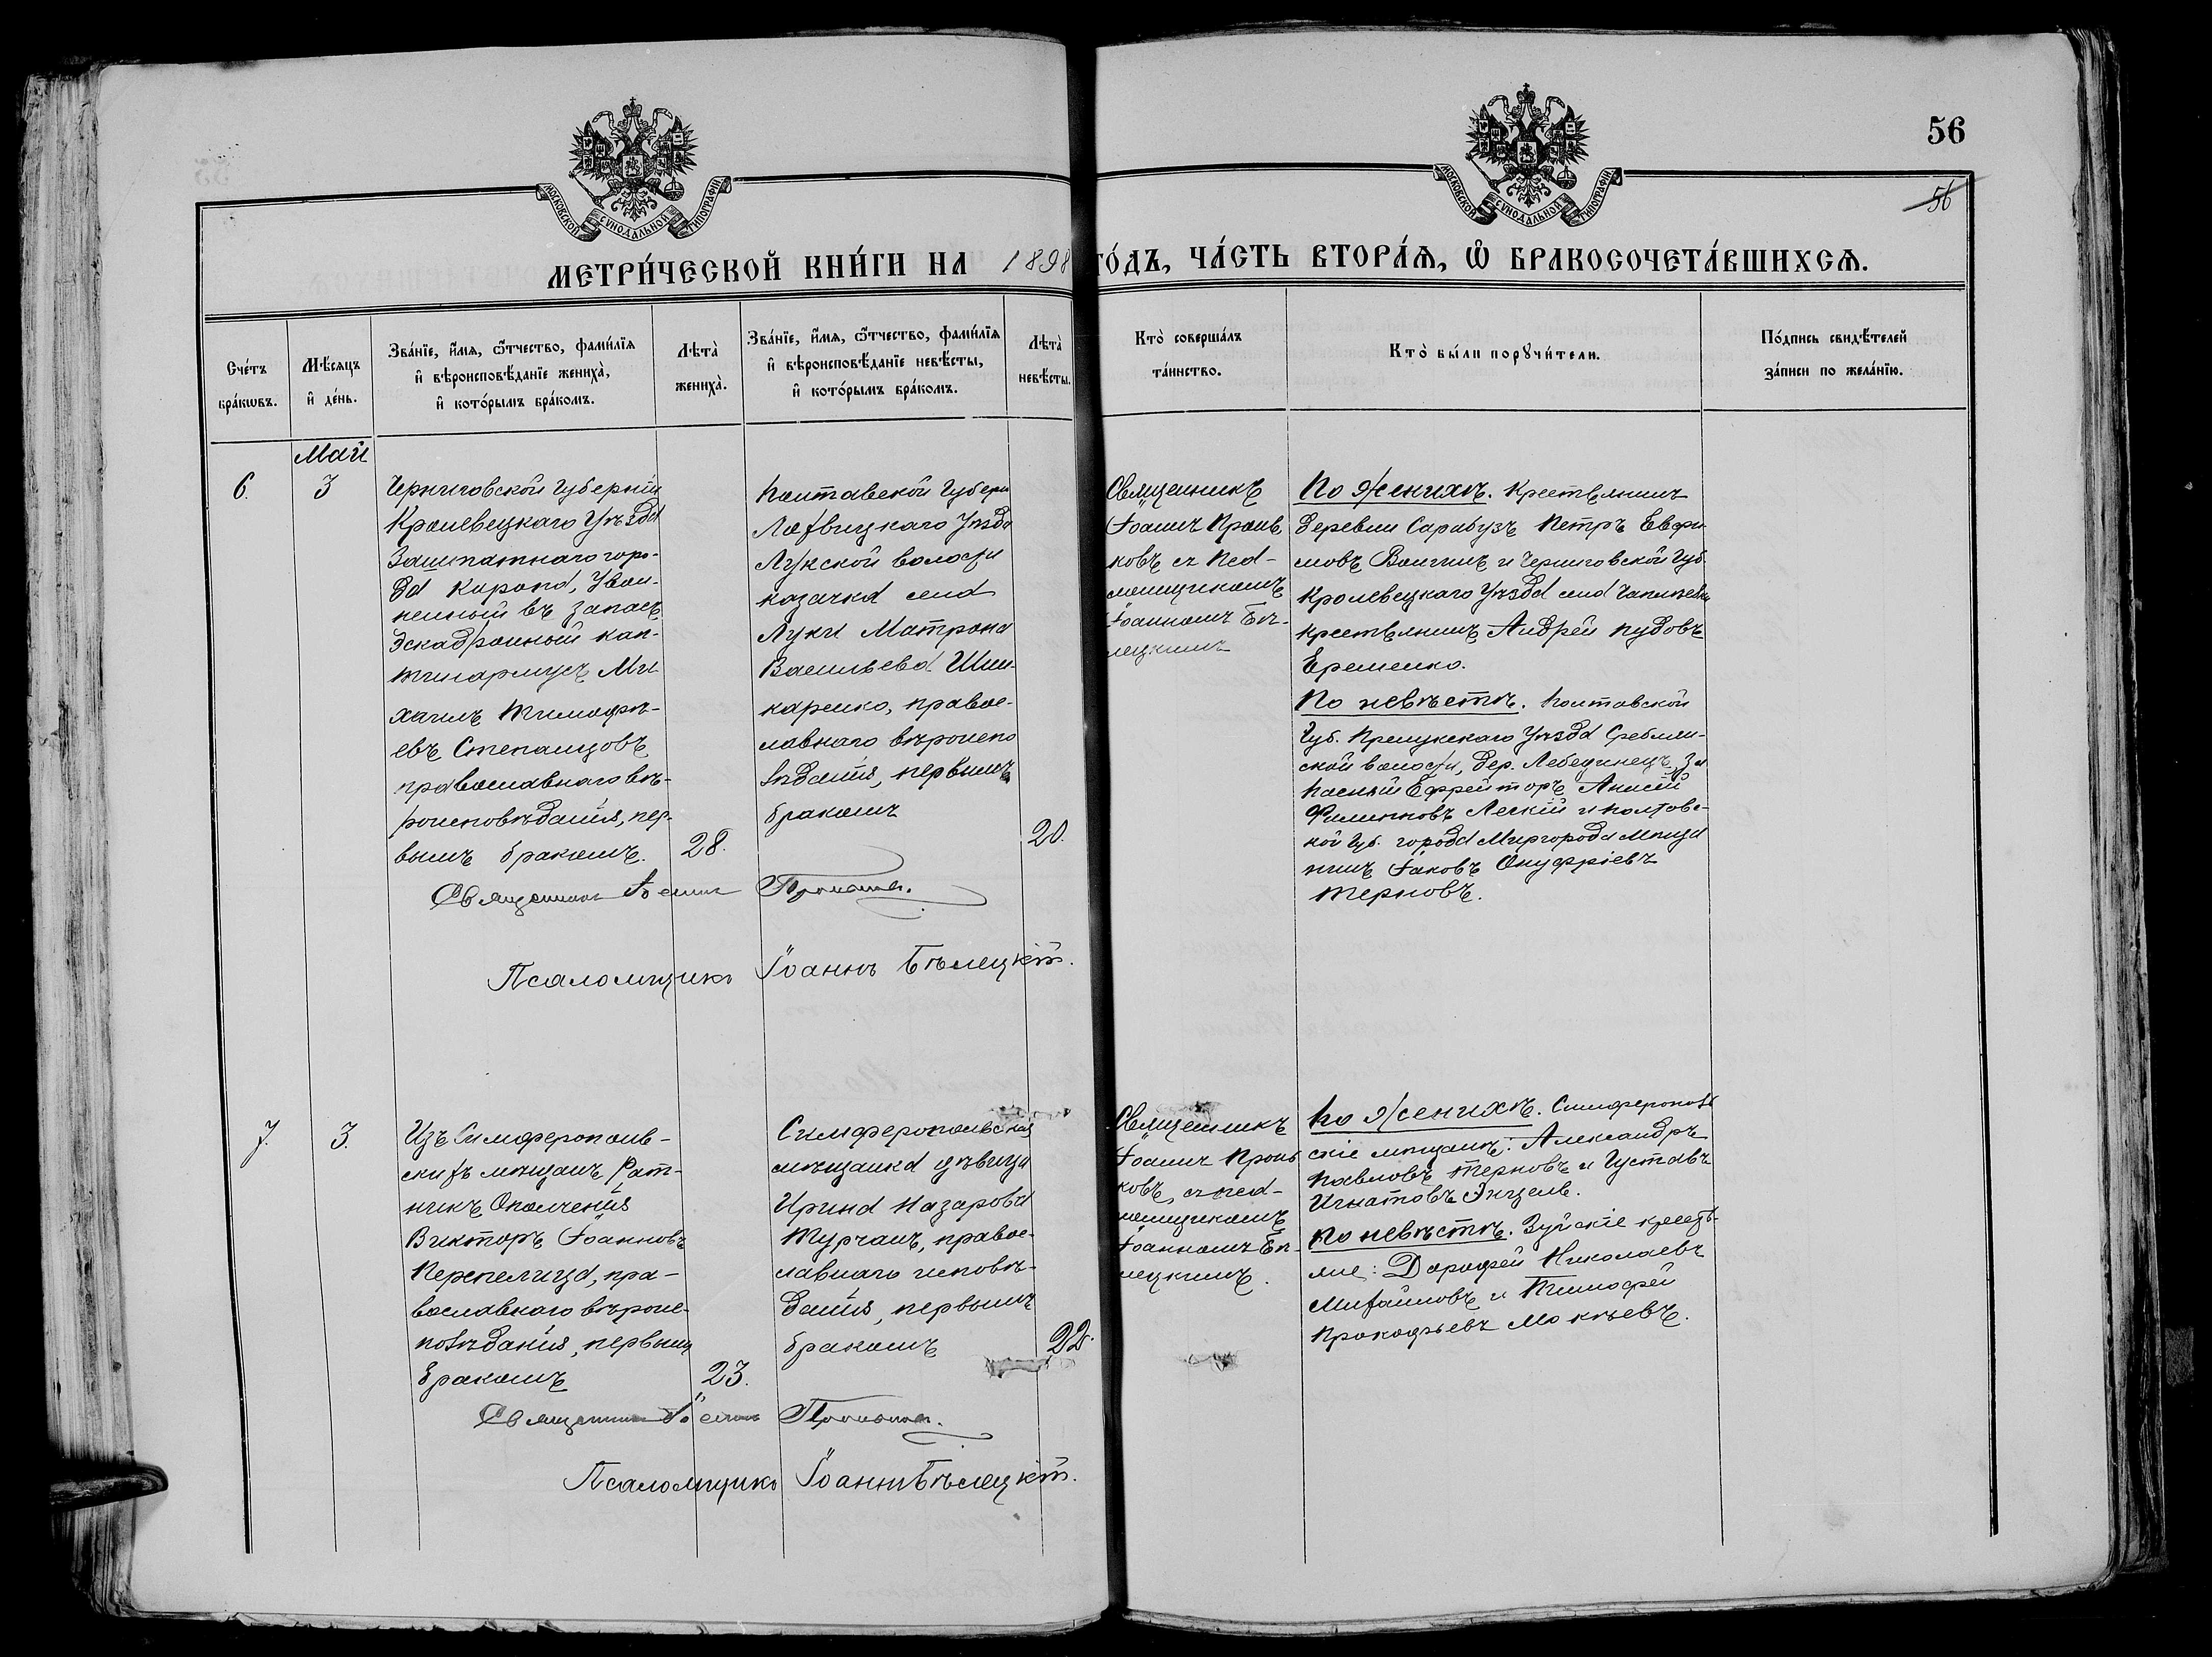 56
56
МОСКОВСКОЙ СѴНОДАЛЬНОЙ ТИПОГРАФІИ
МОСКОВСКОЙ СѴНОДАЛЬНОЙ ТИПОГРАФІИ
МЕТРИ́ЧЕСКОЙ КНИ́ГИ НА 1898 ГО́ДЪ, ЧА́СТЬ ВТОРА́Ѧ, Ѽ БРАКОСОЧЕТА́ВШИХСѦ.
Сче́тъ
бра́кѡвъ.
Мѣ́сяцъ
и҆ де́нь.
Зва́нїе, и҆́мѧ, ѻ҆́тчество, фами́лїѧ
и҆ вѣроисповѣ́данїе жениха̀,
и҆ кото́рымъ бра́комъ.
Лѣта̀
жениха̀.
Зва́нїе, и҆́мѧ, ѻ҆́тчество, фами́лїѧ
и҆ вѣроисповѣ́данїе невѣ́сты,
и҆ кото́рымъ бра́комъ.
Лѣта̀
невѣ́сты.
Кто̀ соверша́лъ
та́инство.
Кто̀ бы́ли порꙋчи́тели.
По́дпись свидѣ́телей
за́писи по жела́нїю.
Май
6.
3
Черниговской Губерніи
Кролевецкаго Уѣзда
Заштатнаго горо-
да Коропа, Увол-
ненный въ запасъ
Эскадронный кап-
тинармусъ Ми
хаилъ Тимофѣ-
евъ Степанцовъ
православнаго вѣ-
роисповѣданія, пер-
вымъ бракомъ.
28.
Полтавской Губерн
Лохвицкаго Уѣзда
Лукской волости
козачка села
Луки Матрона
Васильева Шин-
каренко, правос-
лавнаго вѣроиспо
вѣданія, первымъ
бракомъ
20.
Священникъ
Іоаннъ
ковъ съ Пса-
ломщикомъ
Іоанномъ Бѣ-
лецкимъ
По женихѣ. Крестьянинъ
деревни Сарабузъ Петръ Евфи
мовъ и Черниговской Губ.
Кролевецкаго Уѣзда села
крестьянинъ Андрей Пудовъ
Еременко.
По невѣстѣ. Полтавской
Губ. Прилукскаго Уѣзда Среблян-
ской волости, дер. Лебединецъ За
пасный Ефрейторъ
Филипповъ Лескій и Полтавс-
кой Губ. города Миргорода мѣща
нинъ Іаковъ Онуфріевъ
Терновъ.
Священникъ Іоаннъ
Псаломщикъ Іоаннъ Бѣлецкій.
7.
3.
Изъ Симферополь-
скихъ мѣщанъ Рат-
никъ Ополченія
Викторъ Іоанновъ
Перепелица, пра-
вославнаго вѣроис-
повѣданія, первымъ
бракомъ
23.
Симферопольская
мѣщанка дѣвица
Ирина Назарова
Турчанъ, правос-
лавнаго исповѣ-
данія, первымъ
бракомъ
22.
Священникъ
Іоаннъ
ковъ, съ пса-
ломщикомъ
Іоанномъ Бѣ-
лецкимъ.
По женихѣ. Симферополь
скіе мѣщане: Александръ
Павловъ Терновъ и Густавъ
Игнатовъ
По невѣстѣ. Зуйскіе кресть-
яне: Дорофей Николаевъ
Михайловъ и Тимофей
Прокофьевъ Мокѣевъ.
Священникъ Іоаннъ
Псаломщикъ Іоаннъ Бѣлецкій.